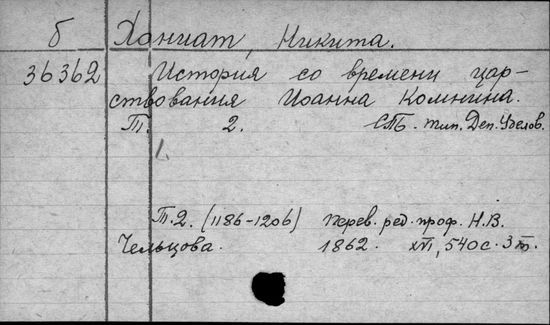 б Хониат, Никита.
36362 История со времени цар-
ствования Иоанна Комнина.
Т. 2. СПб. тип. Деп. Уделов.
1.
Т. 2. (1186-1206) Перев. ред. проф. Н. В.
Чельцова. 1862. XVI, 540 с. 3 т.